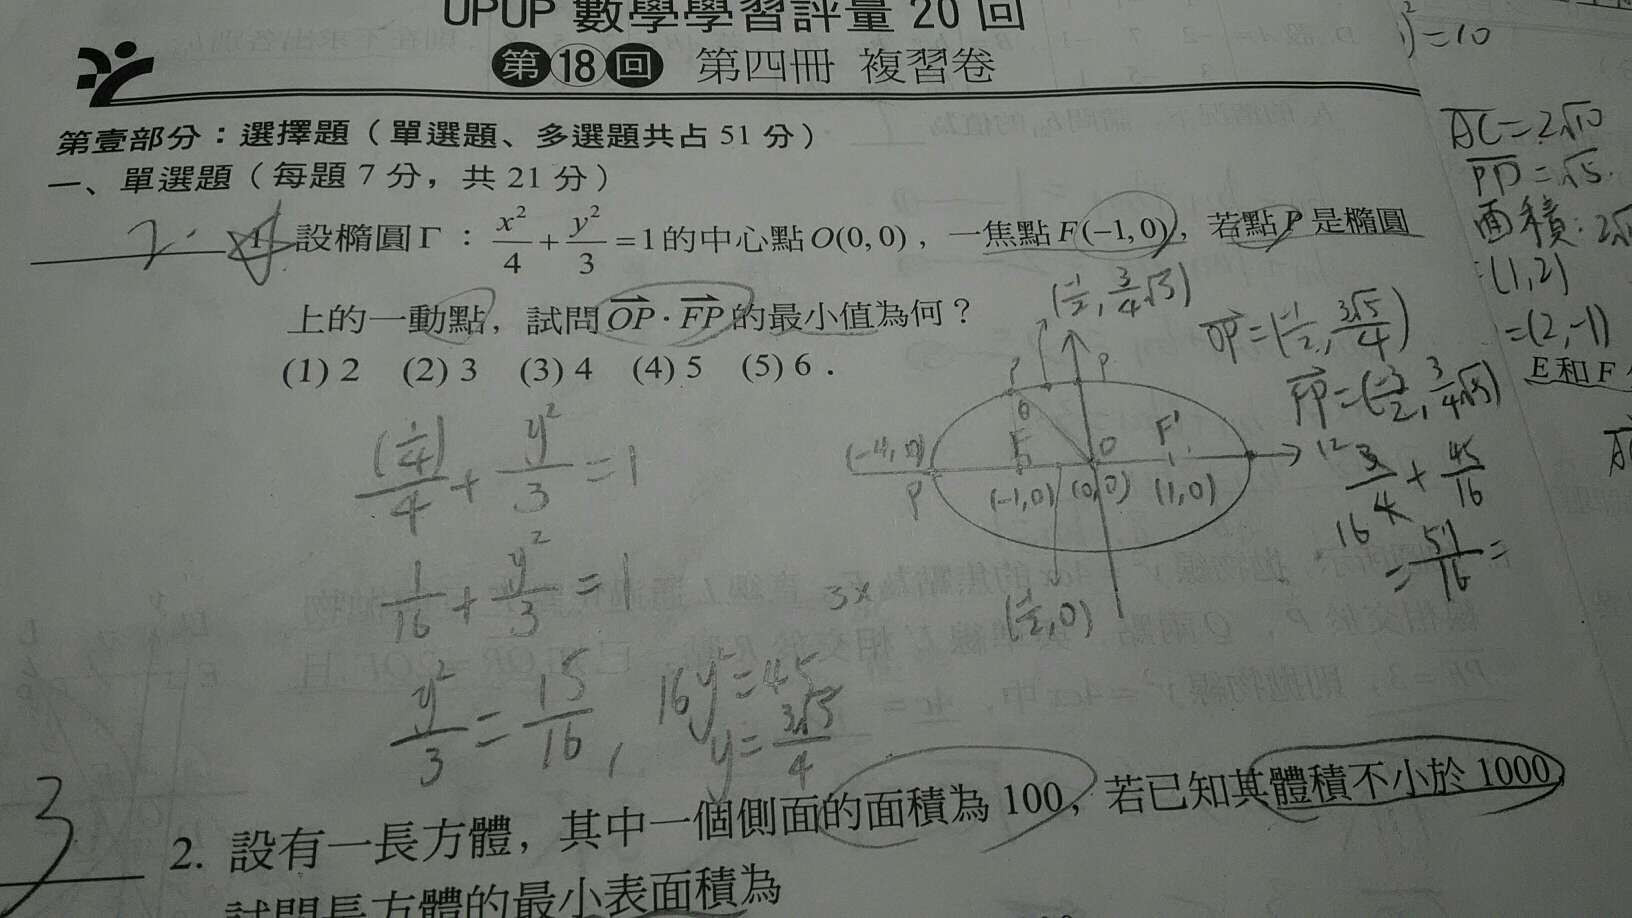 UPUP 數學學習評量 20 回
第 18 回 第四冊 複習卷
第壹部分：選擇題（單選題、多選題共占 51 分）
一、單選題（每題 7 分，共 21 分）
2. 1. 設橢圓 Γ：x²/4 + y²/3 = 1 的中心點 O(0, 0)，一焦點 F(−1, 0)，若點 P 是橢圓
上的一動點，試問 OP · FP 的最小值為何？
(1) 2 (2) 3 (3) 4 (4) 5 (5) 6．
(1/4)/4 + y²/3 = 1
1/16 + y²/3 = 1
y²/3 = 15/16, 16y² = 45
y = 3√5/4
3x
(-1/2, 3/4√5)
P
P
θ
F
O
F'
P
(-1,0) (0,0) (1,0)
(-1/2, 0)
OP = (-1/2, 3√5/4)
FP = (-3/2, 3/4√5)
12 3/4 + 45/16
16
= 57/16 =
)² = 10
AC = 2√10
PD = √5.
面積: 2√
= (1,2)
= (2,-1)
E 和 F
3 2. 設有一長方體，其中一個側面的面積為 100，若已知其體積不小於 1000,
試問長方體的最小表面積為